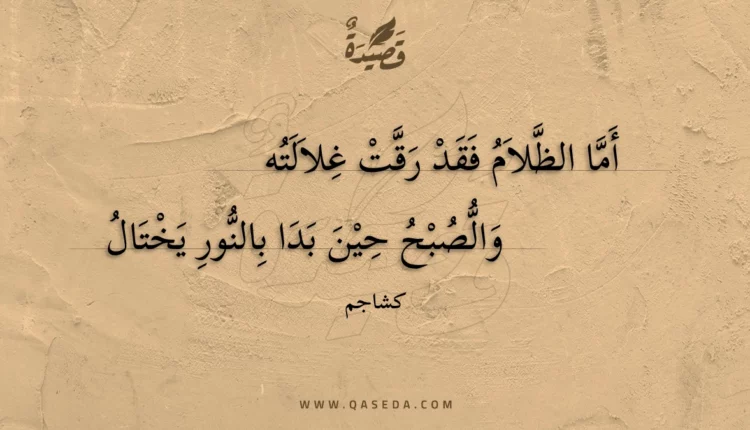 قَصِيْدَةٌ
أَمَّا الظَّلاَمُ فَقَدْ رَقَّتْ غِلاَلَتُه
وَالُّصُبْحُ حِيْنَ بَدَا بِالنُّورِ يَخْتَالُ
كشاجم
WWW.QASEDA.COM